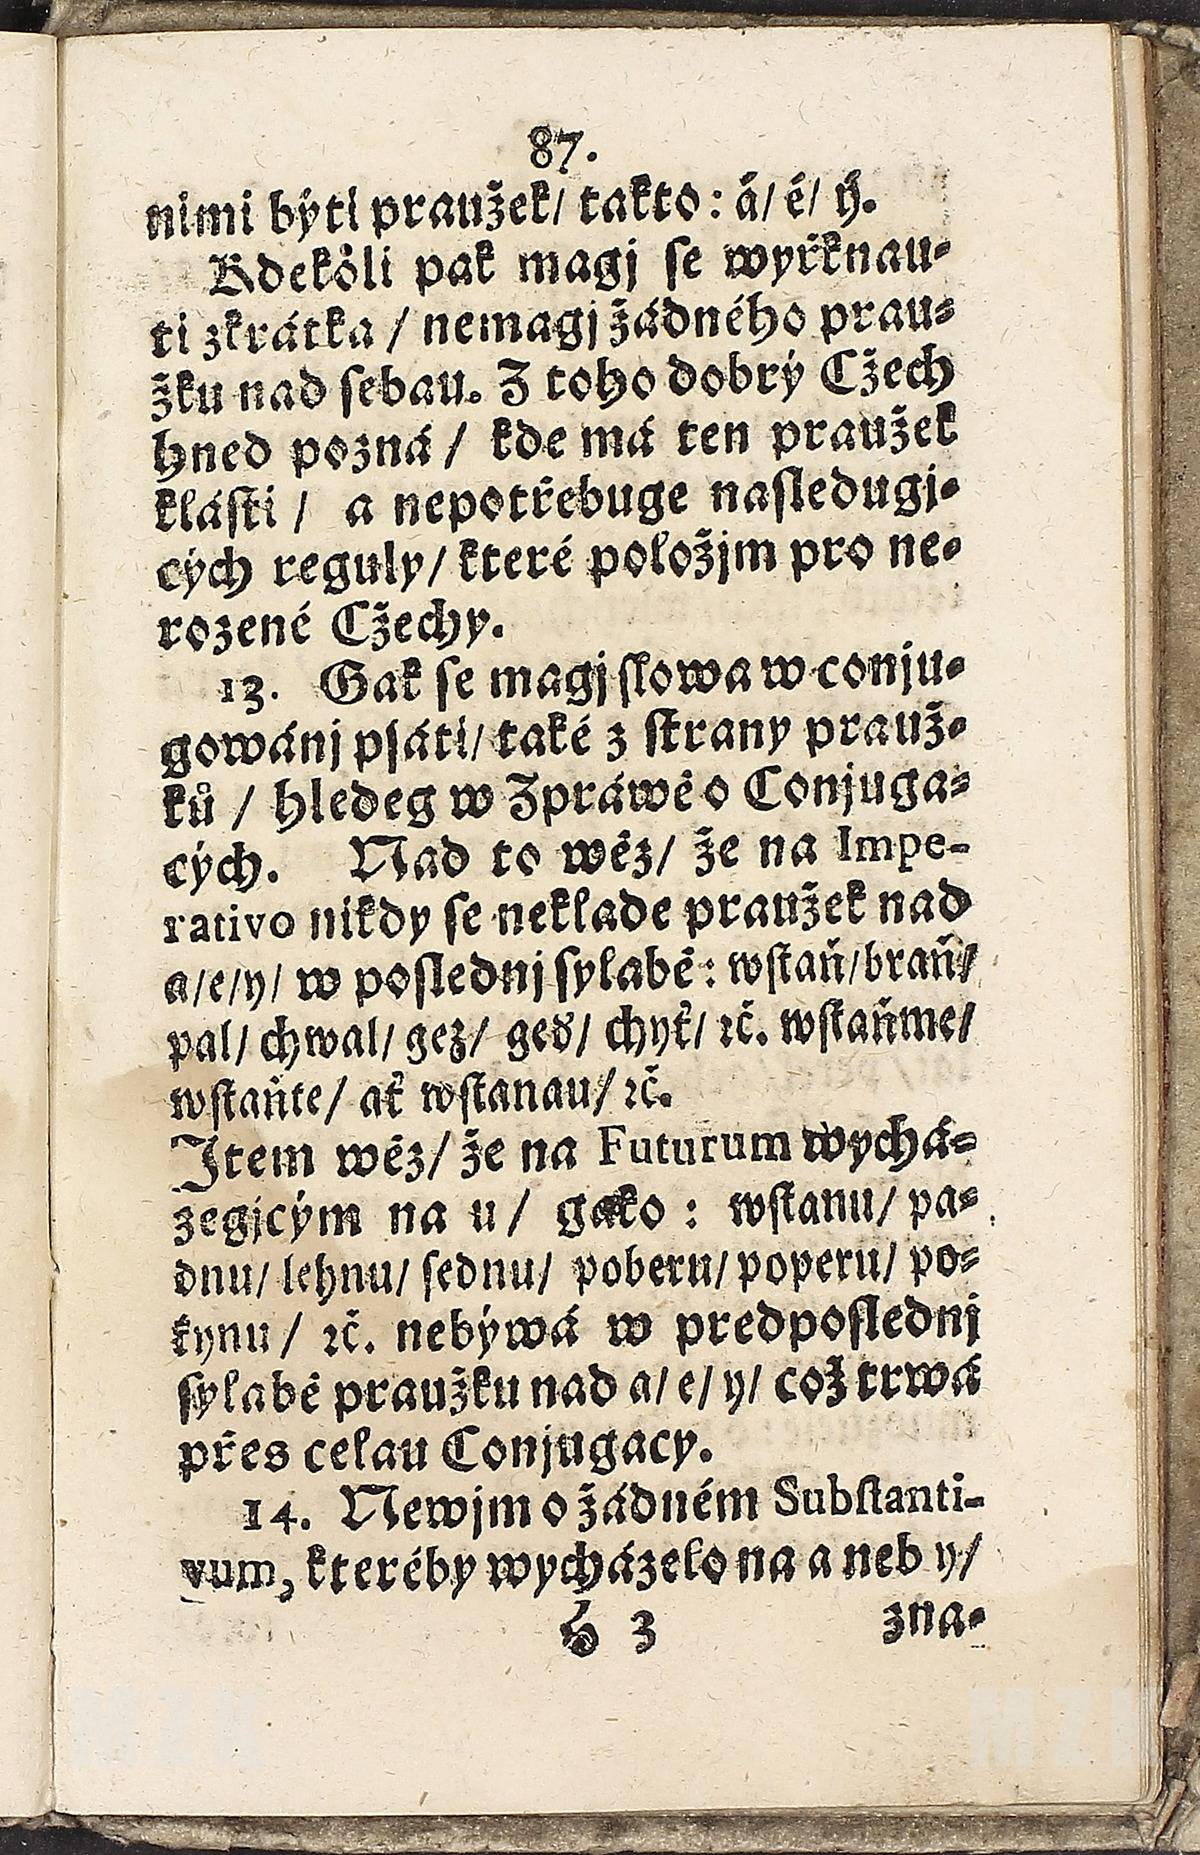 87.
nimi býti praužek/ takto: á/ é/ ý.
Kdekoli pak magj se wyřknau-
ti zkrátka / nemagj žádného prau-
žku nad sebau. Z toho dobrý Cžech
hned pozná / kde má ten praužek
klásti / a nepotřebuge nasledugj-
cých reguly/ které položjm pro ne-
rozené Cžechy.
13. Gak se magj slowa w conju-
gowánj psáti/ také z strany prauž-
ků / hledeg w Zpráwě o Conjuga-
cých. Nad to wěz/ že na Impe-
rativo nikdy se neklade praužek nad
a/e/y/ w poslednj sylabě: wstaň/braň/
pal/ chwal/ gez/ geď/ chyť/ ꝛč. wstaňme/
wstaňte/ ať wstanau/ ꝛč.
Jtem wěz/ že na Futurum wychá-
zegjcým na u / gako : wstanu/ pa-
dnu/ lehnu/ sednu/ poberu/ poperu/ po-
kynu / ꝛč. nebýwá w predposlednj
sylabě praužku nad a/ e/ y/ což trwá
přes celau Conjugacy.
14. Newjm o žádném Substanti-
vum, kteréby wycházelo na a neb y/
H 3 zna-
MZK